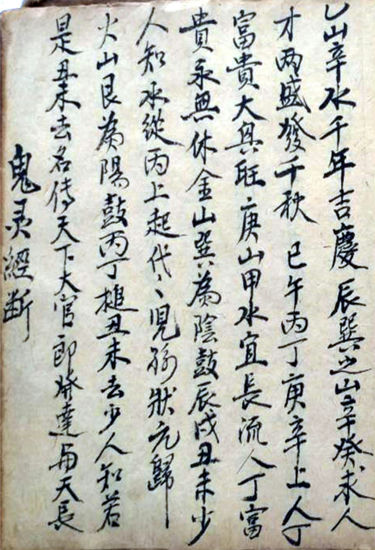 乙山辛水千年吉慶辰巽之山辛癸求人
才两盛發千秋 巳午丙丁庚辛上人丁
富貴大興旺庚山甲水宜長流人丁富
貴永無休金山巽為陰鼓辰戌丑未少
人知水從丙上起代〻児孫狀元歸
火山艮為陽鼓丙丁槌丑未去少人知若
是丑未去名傳天下大官郎發達與天長
鬼灵經断